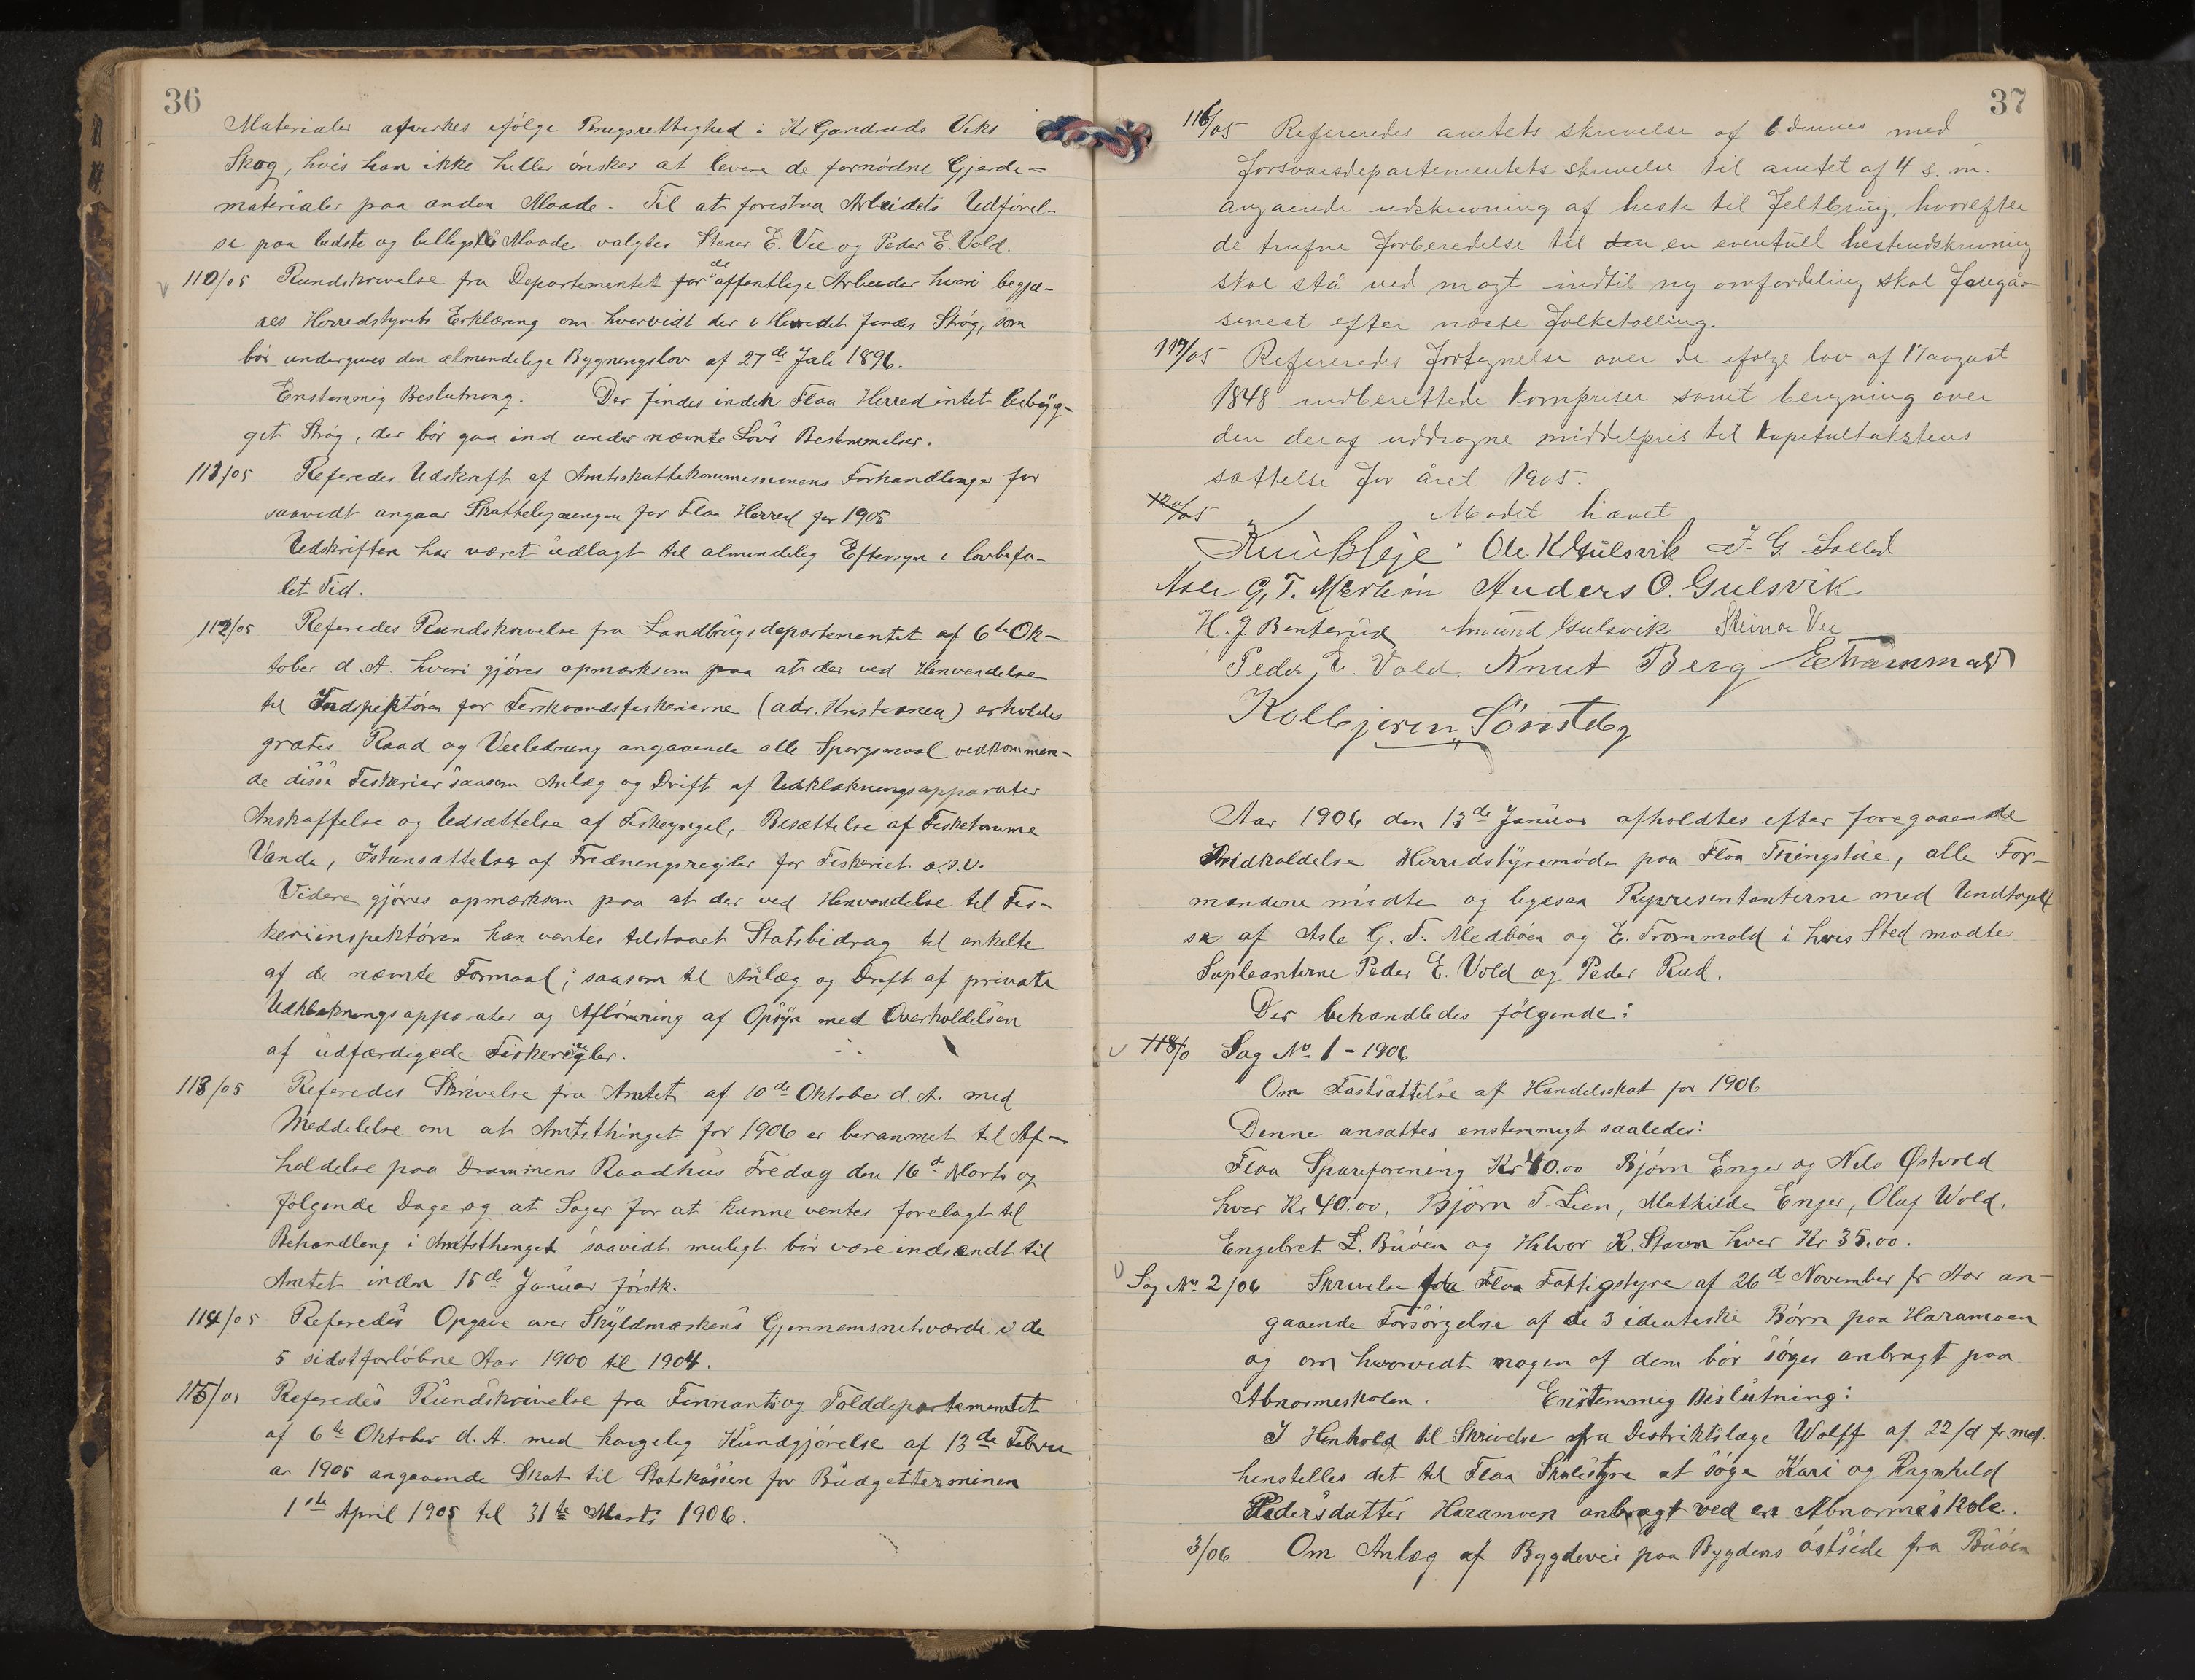 36
Materialer afvirkes ifølge Brugsrettighed i Kr Gandruds Viks
Skog, hvis han ikke heller ønsker at levere de fornødne Gjerde-
materialer paa anden Maade. Til at forestaa Arbeidets Udførel-
se paa bedste og billigste Maade valgtes Stener E. Vie og Peder E. Vold.
110/05 Rundskrivelse fra Departementet for de offentlige Arbeider hvori begjæ-
res Herredstyrets Erklæring om hvorvidt der i Herredet findes Strøg, som
bør undergives den almindelige Bygningslov af 27de Juli 1896.
Enstemmig Beslutning: Der findes inden Flaa Herred intet bebyg-
get Strøg, der bør gaa ind under nævnte Lovs Bestemmelser.
111/05 Referedes Udskrift af Amtsskattekommissionens Forhandlinger for
saavidt angaar Skatteligningen for Flaa Herred for 1905
Udskriften har været udlagt til almindelig Eftersyn i lovbefa-
let Tid.
112/05 Referedes Rundskrivelse fra Landbrugsdepartementet af 6te Ok-
tober d. A. hvori gjøres opmærksom paa at der ved Henvendelse
til Indspektøren for Ferskvandsfiskerierne (adr. Kristiania) erholdes
gratis Raad og Veiledning angaaende alle Spørgsmaal vedkommen-
de disse Fiskerier saasom Anlæg og Drift af Udklækningsapparater
Anskaffelse og Udsættelse af Fiskeyngel, Besættelse af Fisketomme
Vande, Istansættelse af Fredningsregler for Fiskeriet o.s.v.
Videre gjøres opmærksom paa at der ved Henvendelse til Fis-
keriinspektøren kan ventes tilstaaet Statsbidrag til enkelte
af de nævnte Formaal; saasom til Anlæg og Drift af private
Udklækningsapparater og Aflønning af Opsyn med Overholdelsen
af udfærdigede Fiskeregler.
113/05 Referedes Skrivelse fra Amtet af 10de Oktober d. A. med
Meddelelse om at Amtsthinget for 1906 er berammet til Af-
holdelse paa Drammens Raadhus Fredag den 16de Marts og
følgende Dage og at Sager for at kunne ventes forelagt til
Behandling i Amtsthinget saavidt muligt bør være indsendt til
Amtet inden 15de Januar førstk.
114/05 Referedes Opgave over Skyldmarkens Gjennemsnitsværdi i de
5 sidstforløbne Aar 1900 til 1904.
115/05 Referedes Rundskrivelse fra Finnants og Tolddepartementet
af 6te Oktober d. A. med kongelig Kundgjørelse af 13de Febru
ar 1905 angaaende Skat til Statskassen for Budgetterminen
1ste April 1905 til 31te Marts 1906.
37
116/05 Refereredes amtets skrivelse af 6 dennes med
forsvarsdepartementets skrivelse til amtet af 4 s. m.
angaaende udskrivning af heste til Feltbrug, hvorefter
de trufne forberedelse til den en eventuell hesteudskrivning
skal stå ved magt indtil ny omfordeling skal foregå
senest efter næste folketælling.
117/05 Refereredes fortegnelse over de ifølge lov af 17 august
1848 indberettede kornpriser samt beregning over
den deraf uddragne middelpris til kapitultakstens
sættelse for året 1905.
Mødet hævet
Ole. K Gulsvik
Asle G. T. Anders O. Gulsvik
H. J. Benterud Amund Gulsvik Steinar Vie
Peder E. Vold. Knut Berg E Trommald
Kolbjørn Sønsteby
Aar 1906 den 13de Januar afholdtes efter foregaaende
Indkaldelse Herredstyremøde paa Flaa Thingstue, alle For-
mændene mødte og ligesaa Repræsentanterne med Undtagel
se af Asle G. T. Medbøen og E. Trommald i hvis Sted mødte
Supleanterne Peder E. Vold og Peder Rud.
Der behandledes følgende:
118/0 Sag No 1 - 1906
Om Fastsættelse af Handelsskat for 1906
Denne ansattes enstemmigt saaledes:
Flaa Spareforening Kr 40.00 Bjørn Enger og Nels Østvold
hver Kr 40.00, Bjørn T. Lien, Mathilde Enger, Oluf Wold,
Engebret L. Buøen og Halvor K. Stavn hver Kr 35.00.
Sag No 2/06 Skrivelse fra Flaa Fattigstyre af 26de November fr Aar an-
gaaende Forsørgelse af de 3 identiske Børn paa Haramoen
og om hvorvidt nogen af dem bør søges anbragt paa
Abnormeskolen. Enstemmig Beslutning:
I Henhold til Skrivelse fra Distriktslæge Wolff af 22/d fr. md.
henstilles det til Flaa Skolestyre at søge Kari og Ragnhild
Pedersdatter Haramoen anbragt ved en Abnormeskole.
3/06 Om Anlæg af Bygdevei paa Bygdens østside fra Buøen